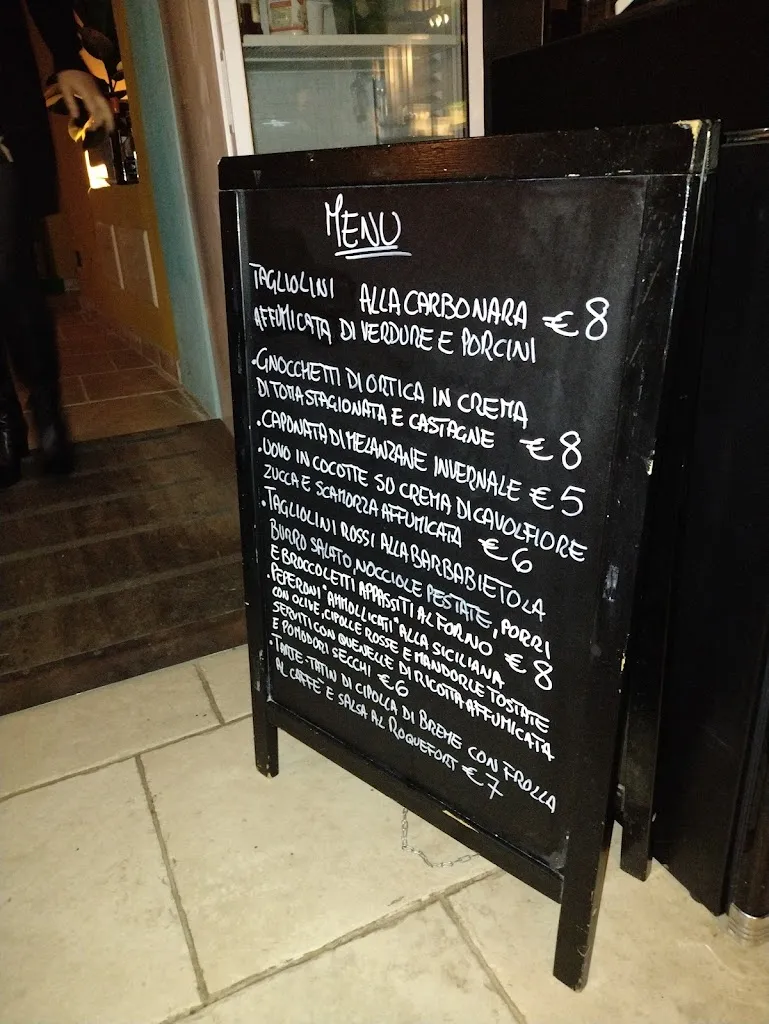 MENU
TAGLIOLINI ALLA CARBONARA €8
AFFUMICATA DI VERDURE E PORCINI
·GNOCCHETTI DI ORTICA IN CREMA
DI TOMA STAGIONATA E CASTAGNE €8
·CAPONATA DI MELANZANE INVERNALE €5
·UOVO IN COCOTTE SU CREMA DI CAVOLFIORE
ZUCCA E SCAMORZA AFFUMICATA €6
·TAGLIOLINI ROSSI ALLA BARBABIETOLA
BURRO SALATO, NOCCIOLE PESTATE, PORRI
E BROCCOLETTI APPASSITI AL FORNO €8
·PEPERONI "AMMOLLICATI" ALLA SICILIANA
CON OLIVE, CIPOLLE ROSSE E MANDORLE TOSTATE
SERVITI CON QUENELLE DI RICOTTA AFFUMICATA
E POMODORI SECCHI €6
·TARTE-TATIN DI CIPOLLA DI BREME CON FROLLA
AL CAFFE' E SALSA AL ROQUEFORT €7